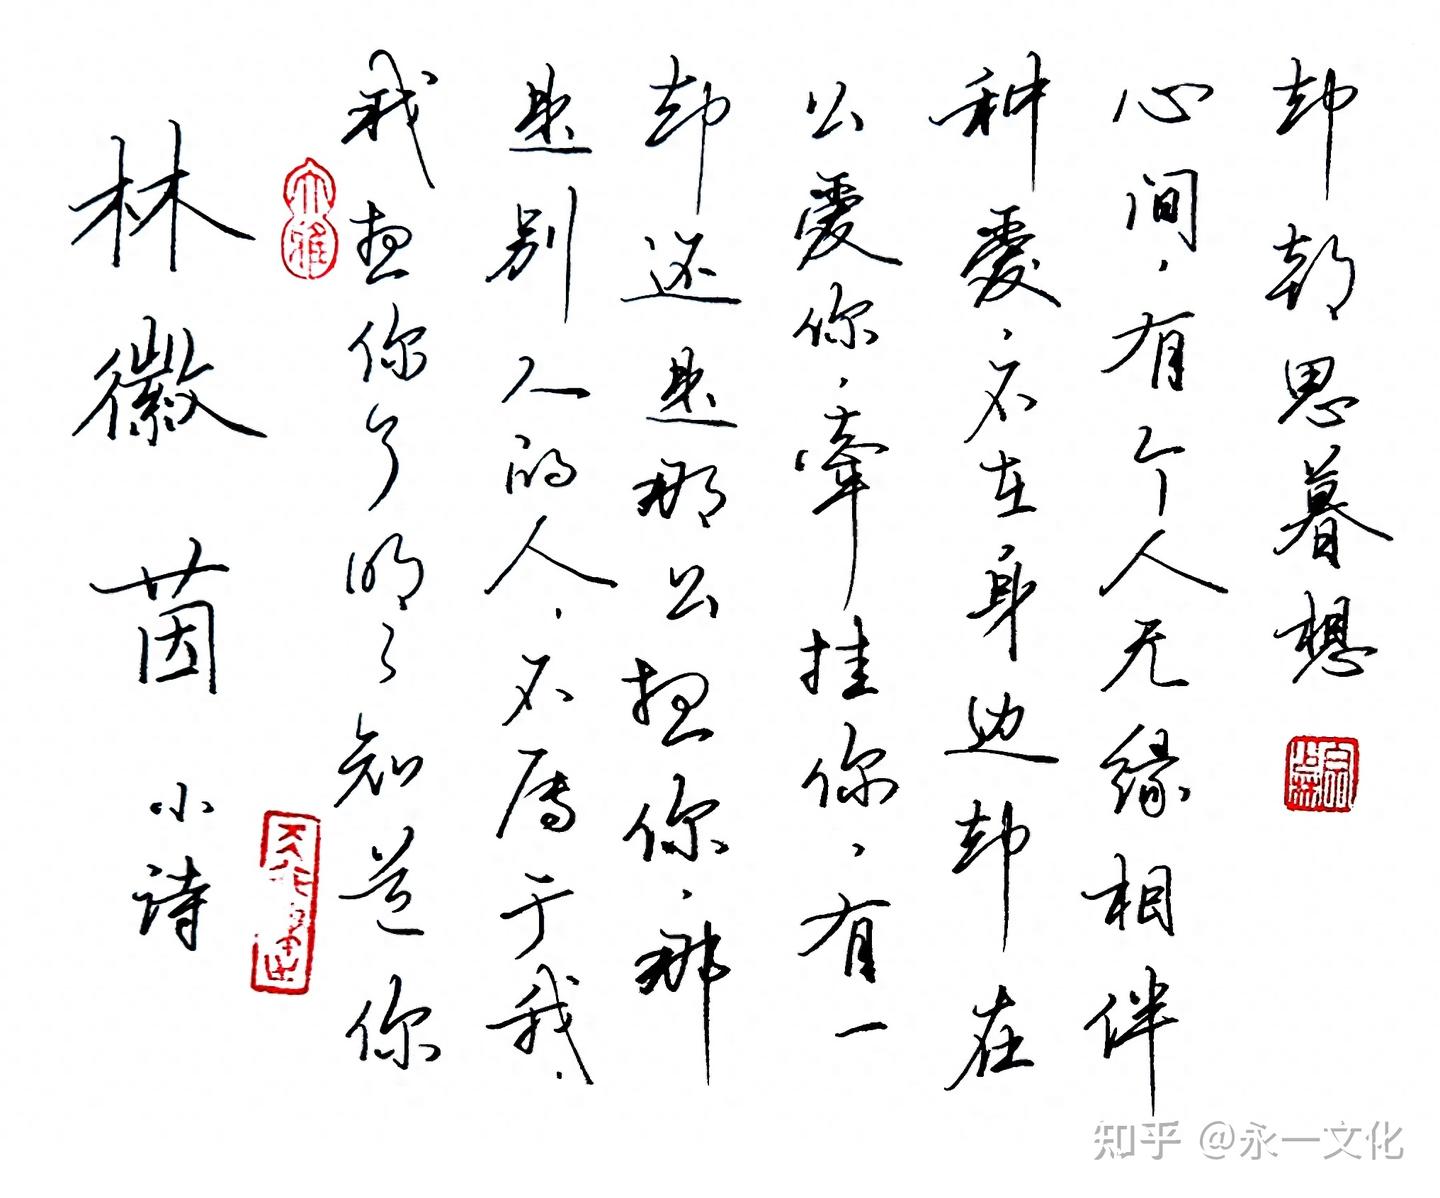 林徽茵
小诗
大雅
我想你了明々知道你
是别人的人，不属于我，
却还是那么想你，那
么爱你，牵挂你，有一
种爱，不在身边却在
心间，有个人无缘相伴
却朝思暮想
知乎 @永一文化